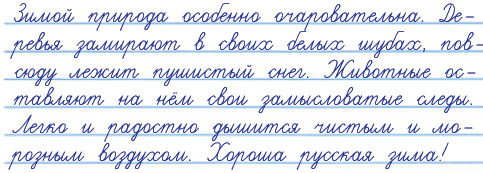 Зимой природа особенно очаровательна. Де-
ревья замирают в своих белых шубах, пов-
сюду лежит пушистый снег. Животные ос-
тавляют на нём свои замысловатые следы.
Легко и радостно дышится чистым и мо-
розным воздухом. Хороша русская зима!